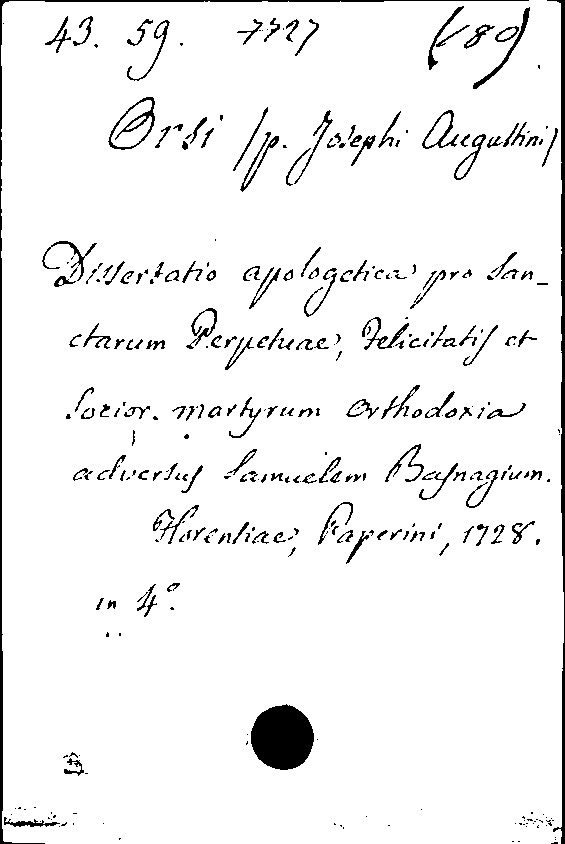 43. 59. 7727 (780)
Orsi /p. Josephi Augustini/
Dissertatio apologetica pro San-
ctarum Perpetuae, Felicitatis et
Socior. martyrum orthodoxia
adversus Samuelem Basnagium.
Florentiae, Paperini, 1728.
in 4º.